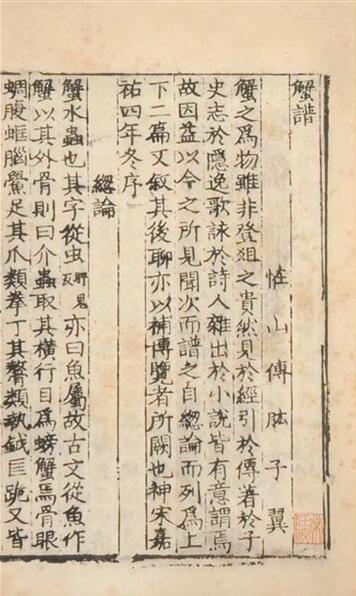 蟹譜
恠山傅肱子翼
蟹之爲物雖非登俎之貴然見於經引於傳著於子
史志於隱逸歌詠於詩人雜出於小說皆有意謂焉
故因益以今之所見聞次而譜之自緫論而列爲上
下二篇又叙其後聊亦以補博覽者所闕也神宋嘉
祐四年冬序
緫論
蟹水蟲也其字從虫吁鬼反亦曰魚屬故古文從魚作
蟹以其外骨則曰介蟲取其橫行目爲螃蟹焉骨眼
蜩腹蛭腦鱟足其爪類拳丁其螯類執鉞匡跪又皆